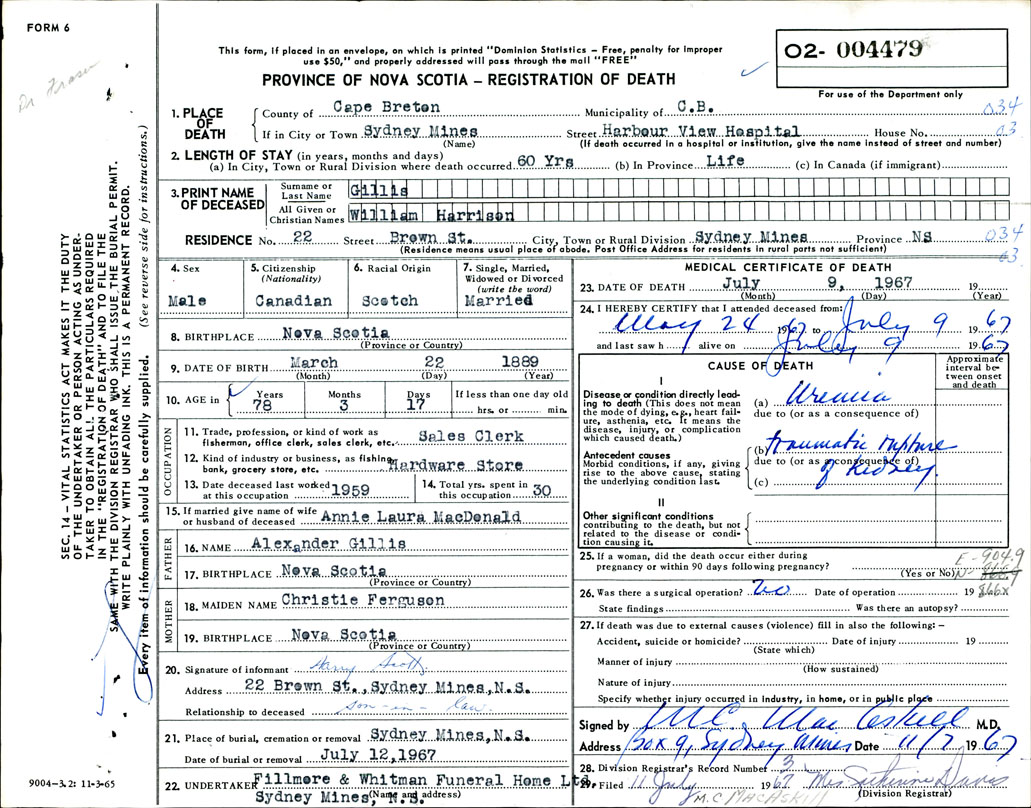 FORM 6
Dr Fraser
This form, if placed in an envelope, on which is printed "Dominion Statistics – Free, penalty for improper
use $50," and properly addressed will pass through the mail "FREE"
PROVINCE OF NOVA SCOTIA – REGISTRATION OF DEATH
02- 004479
For use of the Department only
1. PLACE OF DEATH County of Cape Breton Municipality of C.B. 034
If in City or Town Sydney Mines Street Harbour View Hospital House No. 03
(Name) (If death occurred in a hospital or institution, give the name instead of street and number)
2. LENGTH OF STAY (in years, months and days)
(a) In City, Town or Rural Division where death occurred 60 Yrs (b) In Province Life (c) In Canada (if immigrant)
3. PRINT NAME OF DECEASED Surname or Last Name Gillis
All Given or Christian Names William Harrison
RESIDENCE No. 22 Street Brown St. City, Town or Rural Division Sydney Mines Province NS 034
(Residence means usual place of abode. Post Office Address for residents in rural parts not sufficient) 03
4. Sex Male
5. Citizenship (Nationality) Canadian
6. Racial Origin Scotch
7. Single, Married, Widowed or Divorced (write the word) Married
8. BIRTHPLACE Nova Scotia
(Province or Country)
9. DATE OF BIRTH March 22 1889
(Month) (Day) (Year)
10. AGE in Years 78 Months 3 Days 17 If less than one day old hrs. or min.
OCCUPATION
11. Trade, profession, or kind of work as
fisherman, office clerk, sales clerk, etc. Sales Clerk
12. Kind of industry or business, as fishing,
bank, grocery store, etc. Hardware Store
13. Date deceased last worked at this occupation 1959
14. Total yrs. spent in this occupation 30
15. If married give name of wife
or husband of deceased Annie Laura MacDonald
FATHER
16. NAME Alexander Gillis
17. BIRTHPLACE Nova Scotia
(Province or Country)
MOTHER
18. MAIDEN NAME Christie Ferguson
19. BIRTHPLACE Nova Scotia
(Province or Country)
20. Signature of informant Harry Scott
Address 22 Brown St., Sydney Mines, N.S.
Relationship to deceased son-in-law
21. Place of burial, cremation or removal Sydney Mines, N.S.
Date of burial or removal July 12, 1967
22. UNDERTAKER Fillmore & Whitman Funeral Home Ltd.
Sydney Mines, N.S.
(Name and address)
MEDICAL CERTIFICATE OF DEATH
23. DATE OF DEATH July 9, 1967 19
(Month) (Day) (Year)
24. I HEREBY CERTIFY that I attended deceased from:
May 24 1967 to July 9 1967
and last saw h alive on July 9 1967
CAUSE OF DEATH
Approximate interval between onset and death
I
Disease or condition directly leading to death (This does not mean the mode of dying, e.g., heart failure, asthenia, etc. It means the disease, injury, or complication which caused death.)
(a) Uremia
due to (or as a consequence of)
Antecedent causes
Morbid conditions, if any, giving rise to the above cause, stating the underlying condition last.
(b) traumatic rupture
due to (or as a consequence of)
of kidney.
(c)
II
Other significant conditions
contributing to the death, but not related to the disease or condition causing it.
25. If a woman, did the death occur either during
pregnancy or within 90 days following pregnancy?
(Yes or No)
E-904.9
N-
866x
26. Was there a surgical operation? No Date of operation 19
State findings Was there an autopsy?
27. If death was due to external causes (violence) fill in also the following: –
Accident, suicide or homicide? Date of injury 19
(State which)
Manner of injury
(How sustained)
Nature of injury
Specify whether injury occurred in Industry, in home, or in public place
Signed by M.C. MacAskill M.D.
Address Box 9, Sydney Mines Date 11/7 1967
28. Division Registrar's Record Number 3
29. Filed 11 July 1967 Mrs Davis
M.C MacAskill (Division Registrar)
SEC. 14 – VITAL STATISTICS ACT MAKES IT THE DUTY
OF THE UNDERTAKER OR PERSON ACTING AS UNDER-
TAKER TO OBTAIN ALL THE PARTICULARS REQUIRED
IN THE "REGISTRATION OF DEATH" AND TO FILE THE
SAME WITH THE DIVISION REGISTRAR WHO SHALL ISSUE THE BURIAL PERMIT.
WRITE PLAINLY WITH UNFADING INK. THIS IS A PERMANENT RECORD.
Every item of information should be carefully supplied. (See reverse side for instructions.)
9004-3.2: 11-3-65